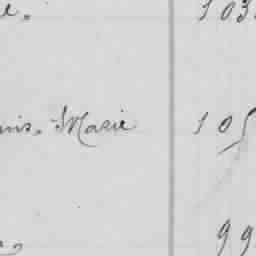 e. 103
nis. Marie 105
99